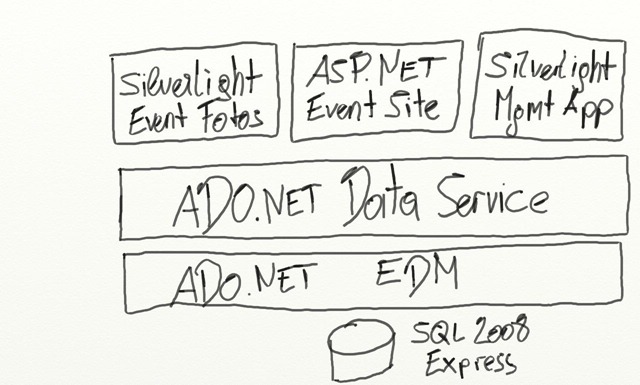 Silverlight
Event Fotos
ASP.NET
Event Site
Silverlight
Mgmt App
ADO.NET Data Service
ADO.NET EDM
SQL 2008
Express